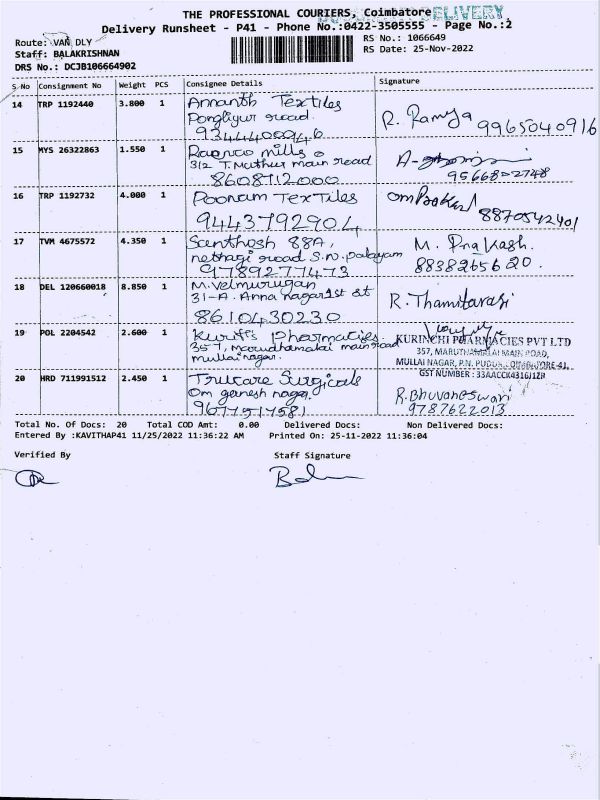 THE PROFESSIONAL COURIERS, Coimbatore
DELIVERY
Delivery Runsheet - P41 - Phone No.:0422-3505555 - Page No.:2
Route: VAN DLY
RS No.: 1066649
Staff: BALAKRISHNAN
RS Date: 25-Nov-2022
DRS No.: DCJB106664902
S.No Consignment No Weight PCS Consignee Details Signature
14 TRP 1192440 3.800 1 Ananth Textiles
Pongliyur road
R. Ramya 9965040916
15 MYS 26322863 1.550 1 mills
312 T. Muthur main road
8608712000
16 TRP 1192732 4.000 1 Poonam Textiles
9443792904
8870542401
17 TVM 4675572 4.350 1 Santhosh 88A,
nethaji road S.N. Palayam
9789277473
M. Prakash.
8838265620.
18 DEL 120660018 8.850 1 M. Velmurugan
31-A. Anna nagar 1st st
8610430230
R. Thamitarasi
19 POL 2204542 2.600 1 Pharmacies.
357, marudhamalai main road
mullai nagar.
KURINCHI PHARMACIES PVT LTD
357, MARUTHAMALAI MAIN ROAD,
MULLAI NAGAR, P.N. PUDUR, COIMBATORE-41,
GST NUMBER : 33AACCK4316J1ZR
20 HRD 711991512 2.450 1 Trucare Surgicals
Om ganesh nagar,
9677517581
R. Bhuvaneswari
9787622013
Total No. Of Docs: 20 Total COD Amt: 0.00 Delivered Docs: Non Delivered Docs:
Entered By :KAVITHAP41 11/25/2022 11:36:22 AM Printed On: 25-11-2022 11:36:04
Verified By Staff Signature